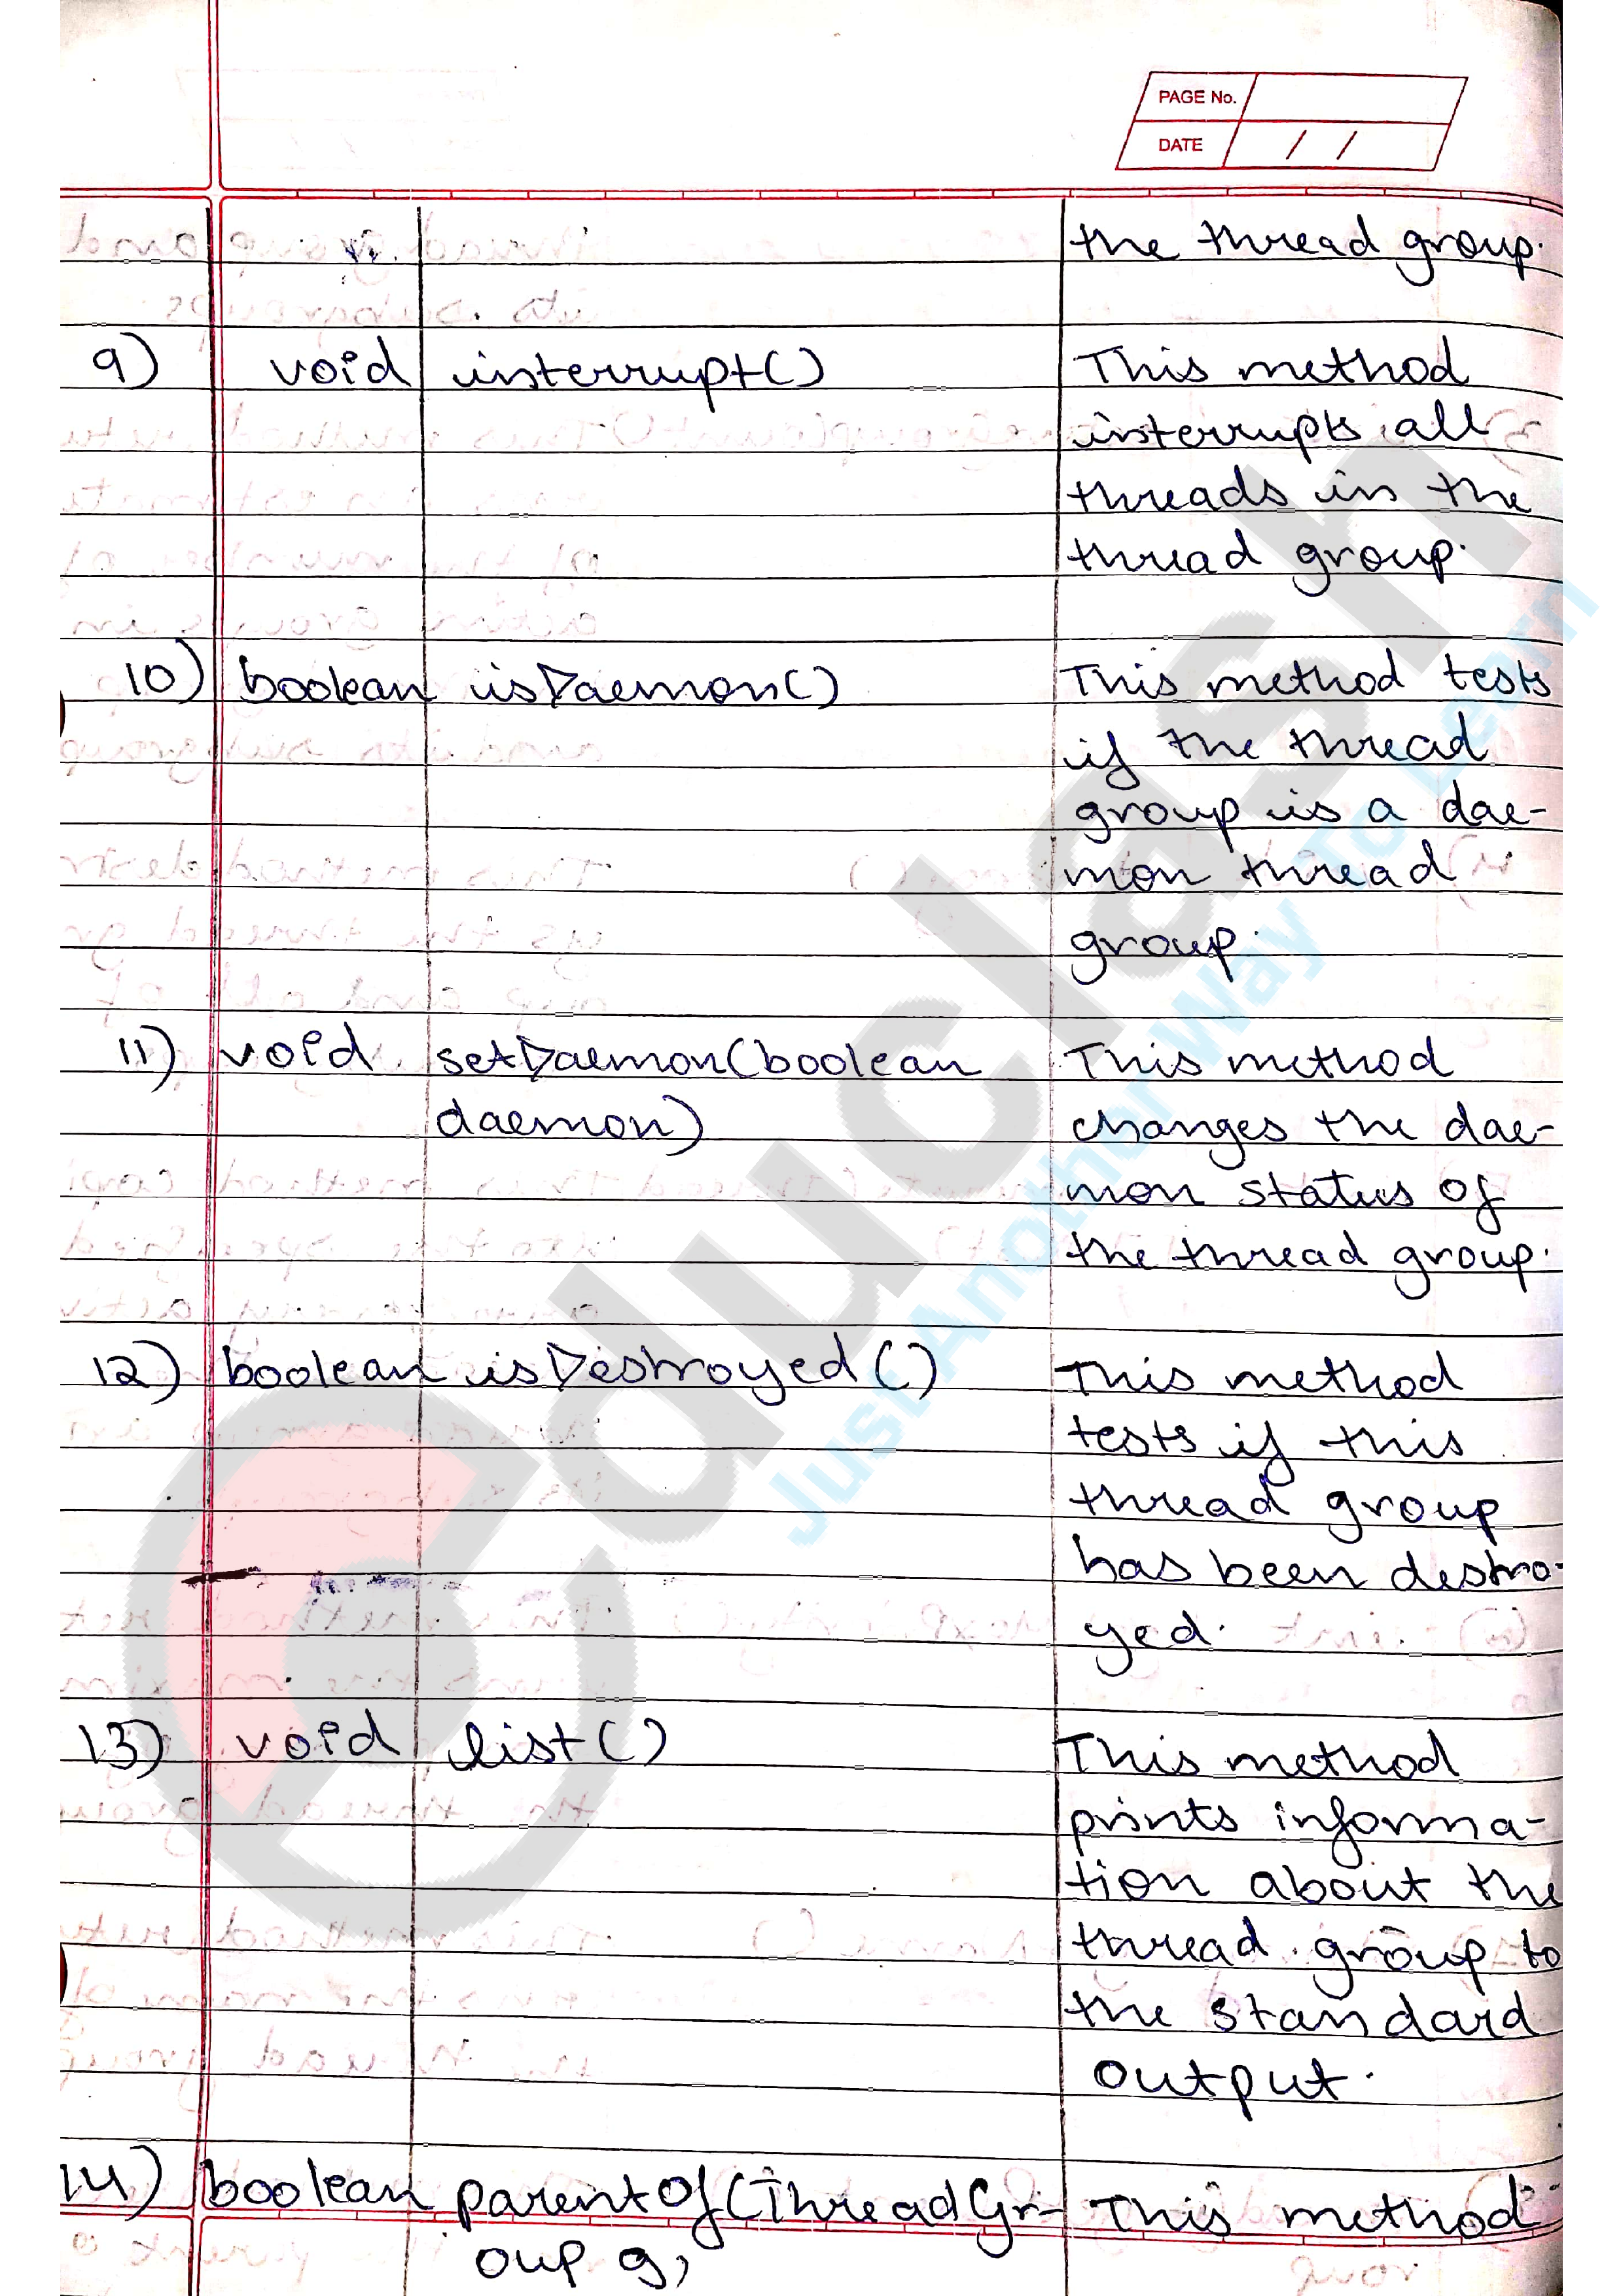 PAGE No.
DATE / /
the thread group.
9) void interrupt() This method
interrupts all
threads in the
thread group.
10) boolean isDaemon() This method tests
if the thread
group is a dae-
mon thread
group.
11) void setDaemon(boolean This method
daemon) changes the dae-
mon status of
the thread group.
12) boolean isDestroyed() This method
tests if this
thread group
has been destro-
yed.
13) void list() This method
prints informa-
tion about the
thread group to
the standard
output.
14) boolean parentOf(ThreadGr- This method
oup g,
educlash
Just Another Way To Learn